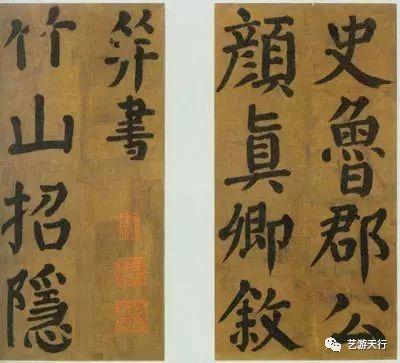 史魯郡公
顔眞卿敘
并書
竹山招隱
艺游天行